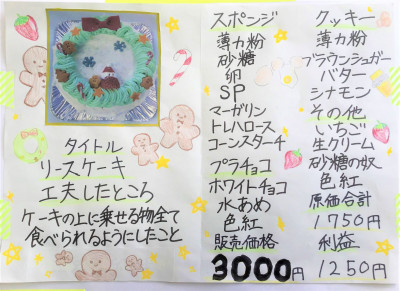 タイトル
リースケーキ
工夫したところ
ケーキの上に乗せる物全て
食べられるようにしたこと
スポンジ
薄力粉
砂糖
卵
SP
マーガリン
トレハロース
コーンスターチ
プラチョコ
ホワイトチョコ
水あめ
色紅
販売価格
3000円
クッキー
薄力粉
ブラウンシュガー
バター
シナモン
その他
いちご
生クリーム
砂糖の奴
色紅
原価合計
1750円
利益
1250円